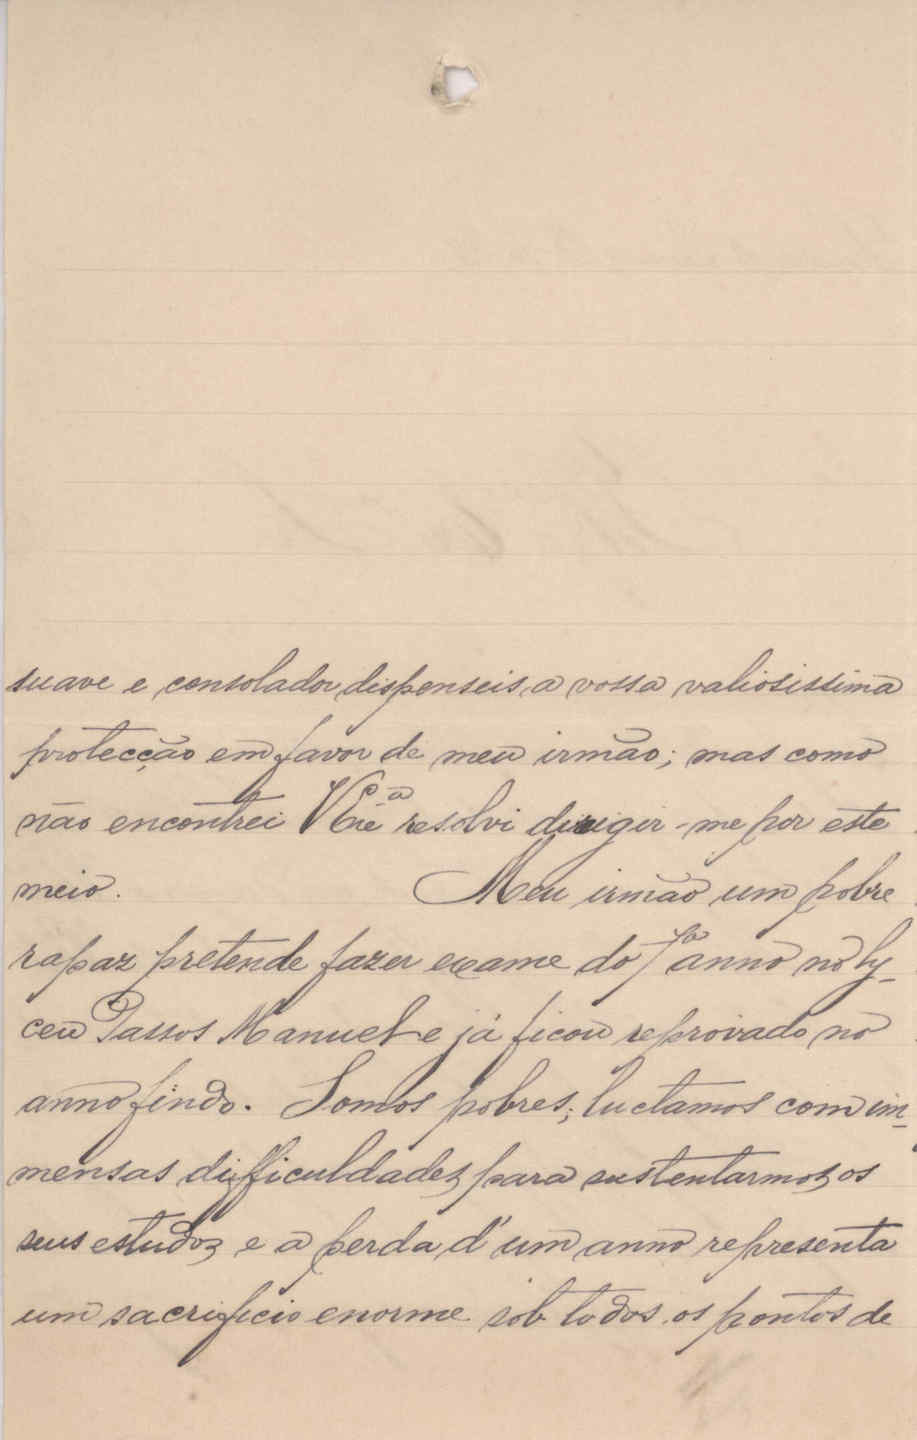 suave e consolador, dispenseis, a vossa valiosissima
protecção em favor de meu irmão; mas como
não encontrei V Exª resolvi dirigir-me por este
meio. Meu irmão um pobre
rapaz pretende fazer exame do 7º anno no Ly-
ceu Passos Manuel e já ficou reprovado no
anno findo. Somos pobres; luctamos com im-
mensas difficuldades, para sustentarmos, os
seus estudos, e a perda d'um anno representa
um sacrificio enorme sob todos os pontos de